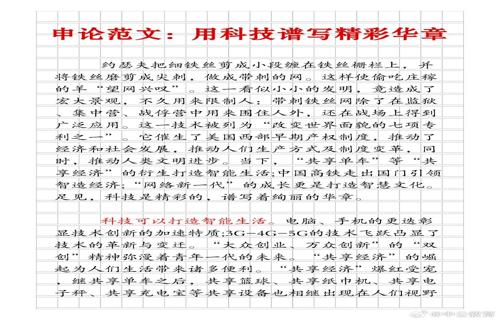 申论范文：用科技谱写精彩华章
约瑟夫把细铁丝剪成小段缠在铁丝栅栏上，并
将铁丝磨剪成尖刺，做成带刺的网。这样使偷吃庄稼
的羊“望网兴叹”。这一看似小小的发明，竟造成了
宏大景观，不久用来限制人：带刺铁丝网除了在监狱
、集中营、战俘营中用来围住人外，还在战场上得到
广泛应用。这一技术被列为“改变世界面貌的七项专
利之一”。它催生了美国西部早期产权制度，推动了
经济和社会发展，推动人们生产方式及制度变革，同
时，推动人类文明进步。当下，“共享单车”等“共
享经济”的衍生打造智能生活;中国高铁走出国门引领
智造经济;“网络新一代”的成长更是打造智慧文化。
足见，科技是精彩的，谱写着绚丽的华章。
科技可以打造智能生活。电脑、手机的更迭彰
显技术创新的加速特质;3G-4G-5G的技术飞跃凸显了
技术的革新与变迁。“大众创业、万众创新”的“双
创”精神弥漫着青年一代的未来。“共享经济”的崛
起为人们生活带来诸多便利。“共享经济”爆红受宠
，继共享单车之后，共享篮球、共享纸巾机、共享电
子秤、共享充电宝等共享设备也相继出现在人们视野
@中公教育